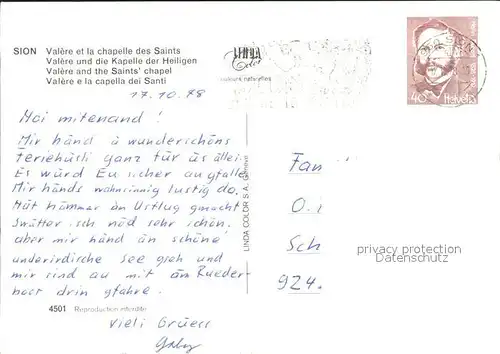 SION Valère et la chapelle des Saints
Valère und die Kapelle der Heiligen
Valère and the Saints' chapel
Valère e la capella dei Santi
17.10.78
LINDA
Color
couleurs naturelles
40 Helvetia
Hoi mitenand!
Mir händ ä wunderschöns
Feriehüsli ganz für äs allei.
Es würd Eu sicher au gfalle.
Mir händs wahnsinnig lustig do.
Hüt hämmer än Usflug gmacht
s'wätter isch nöd sehr schön,
aber mir händ än schöne
underirdische See gseh und
mir sind au mit äm Rueder-
boot drin gfahre.
Vieli Grüess
Gaby
4501 Reproduction interdite
LINDA COLOR S.A. Genève
Fan
O.
Sch
924.
privacy protection
Datenschutz